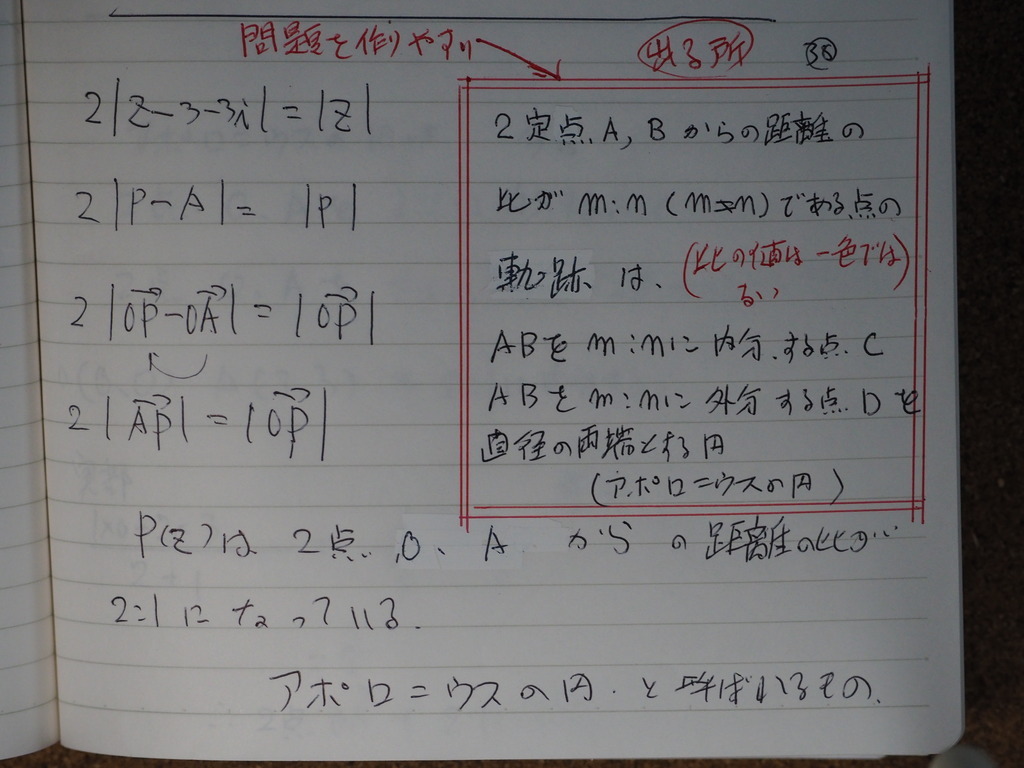 問題を作りやすい
出る所
2|z-3-3i|=|z|
2|P-A|=|P|
2|OP→-OA→|=|OP→|
2|AP→|=|OP→|
2定点A, Bからの距離の
比がm:n (m≠n)である点の
軌跡は、(比の値は一色では
ない
ABをm:nに内分する点C
ABをm:nに外分する点Dを
直径の両端とする円
(アポロニウスの円)
P(z)は2点O、Aからの距離の比が
2:1になっている.
アポロニウスの円と呼ばれるもの.